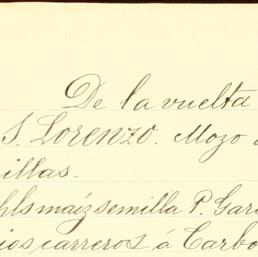 De la vuelta
S. LORENZO. Mozo
illas.
hls maíz semilla P. Gar
ios carreros á Carbo